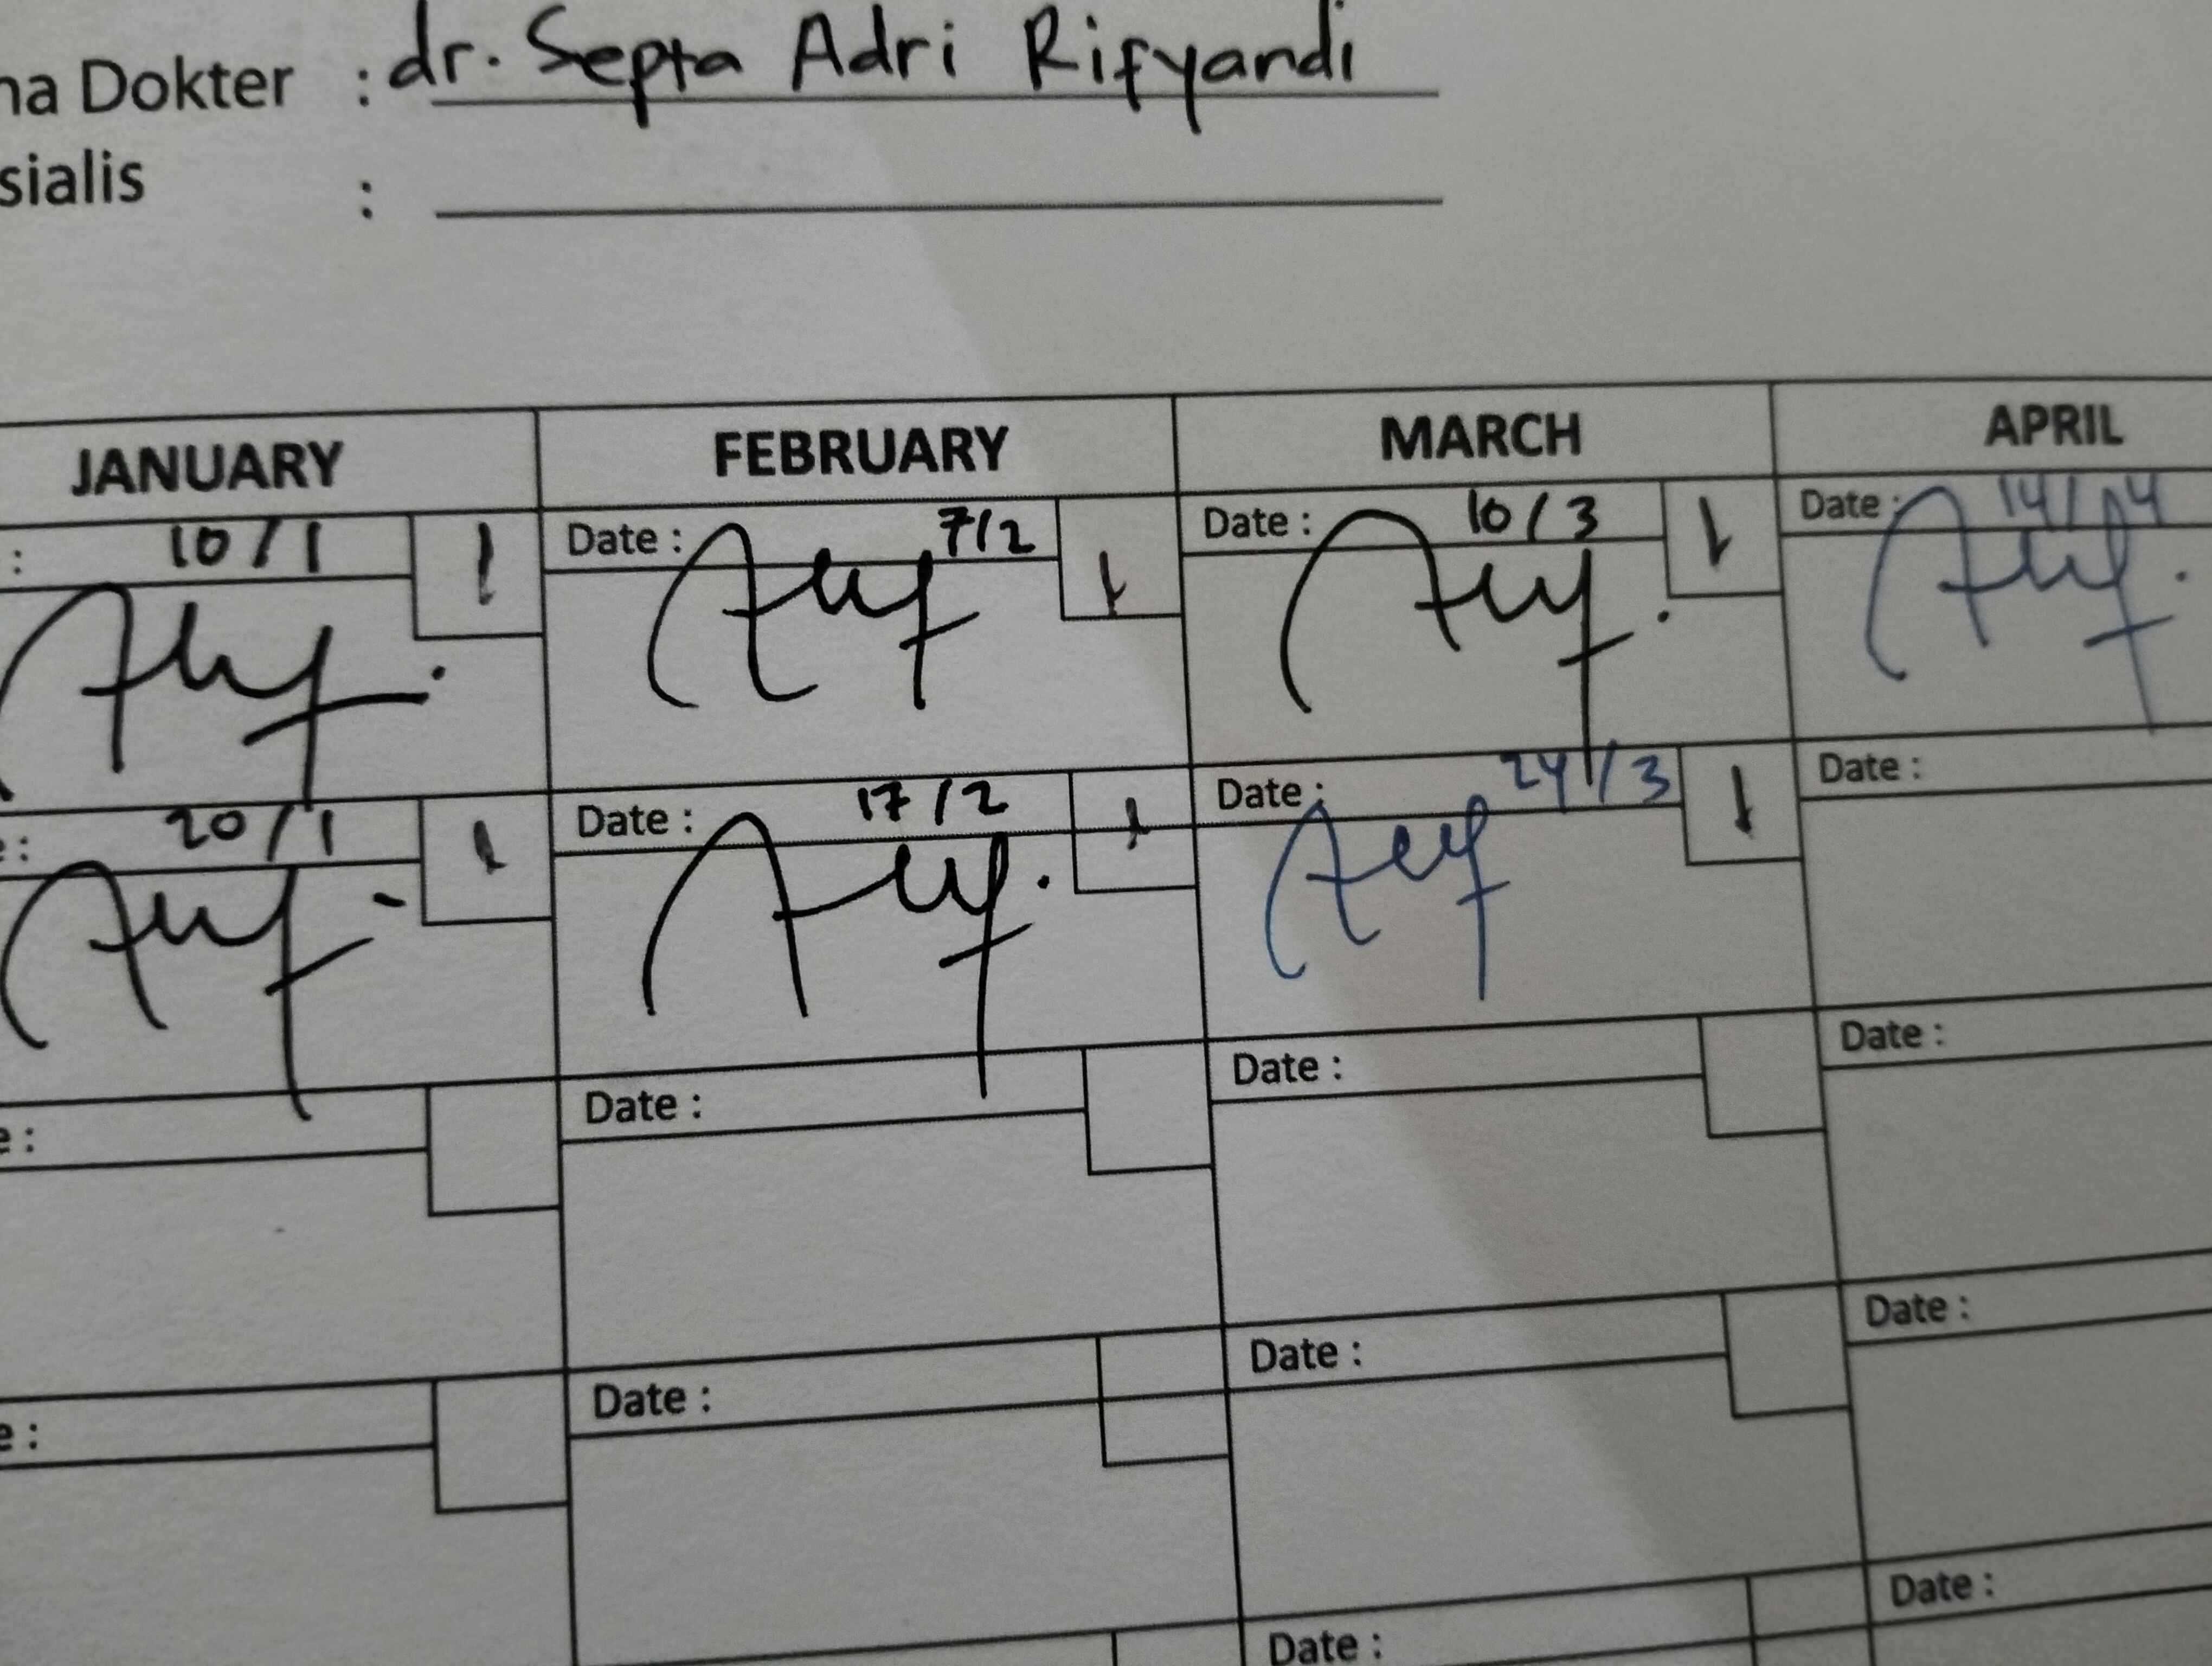 na Dokter : dr. Septa Adri Rifyandi
sialis :
JANUARY FEBRUARY MARCH APRIL
: 10/1 1 Date : 7/2 1 Date : 10/3 1 Date : 14/04
e: 20/1 1 Date : 17/2 1 Date : 24/3 1 Date :
e: Date : Date : Date :
e: Date : Date : Date :
Date : Date :